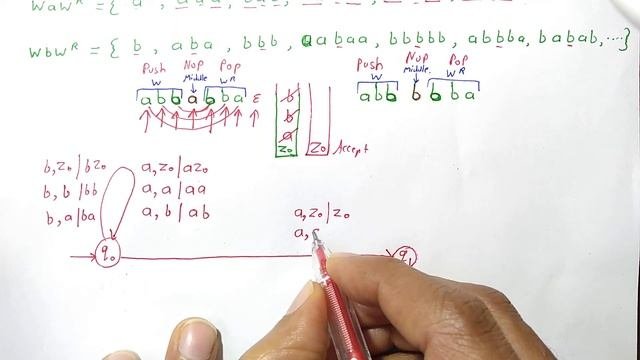 WaWᴿ = { a , aaa, bab,
WbWᴿ = { b , aba , bbb , aabaa , bbbbb , abbba , babab , ....}
Push Nop Pop
W Middle Wᴿ
a b b a b b a ε
b
b
a
z₀ z₀ Accept
Push Nop Pop
W Middle. Wᴿ
a b b b b b a
b,z₀|bz₀ a,z₀|az₀
b,b|bb a,a|aa
b,a|ba a,b|ab
a,z₀|z₀
a,
q₀ q₁